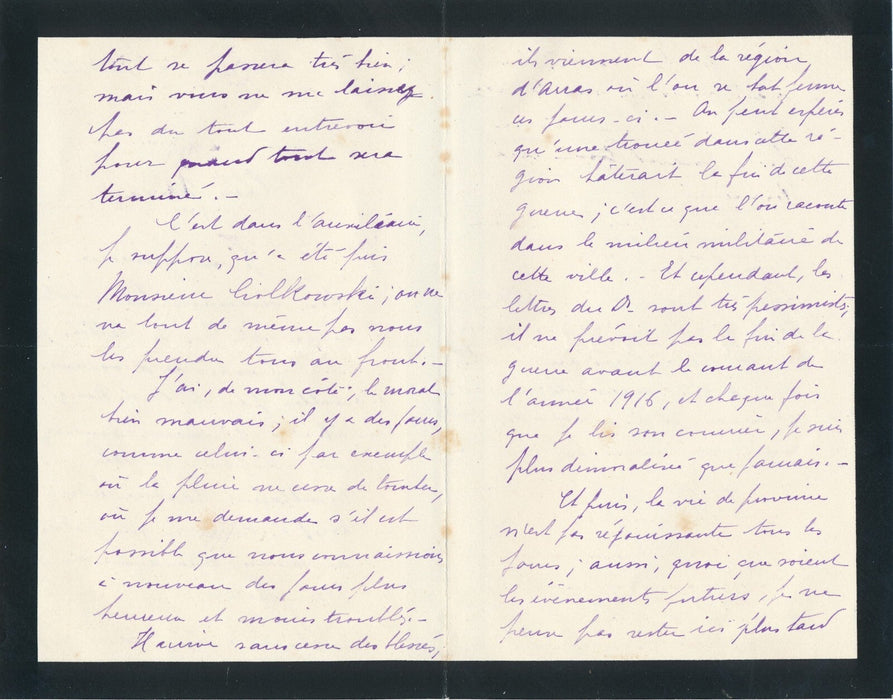 tout se passera très bien ;
mais vous ne me laissez
pas du tout entrevoir
pour quand tout sera
terminé. –
C'est dans l'auxiliaire,
je suppose, qu'a été pris
Monsieur Ciolkowski ; on ne
va tout de même pas nous
les prendre tous au front. –
J'ai, de mon côté, le moral
bien mauvais ; il y a des jours,
comme celui-ci par exemple
où la pluie ne cesse de tomber,
où je me demande s'il est
possible que nous connaissions
à nouveau des jours plus
heureux et moins troublés. –
Il arrive sans cesse des blessés,
ils viennent de la région
d'Arras où l'on se bat ferme
ces jours-ci. – On peut espérer
qu'une trouée dans cette ré-
gion hâterait la fin de cette
guerre ; c'est ce que l'on raconte
dans le milieu militaire de
cette ville. – Et cependant, les
lettres du Dr sont très pessimistes,
il ne prévoit pas la fin de la
guerre avant le courant de
l'année 1916, et chaque fois
que je lis son courrier, je suis
plus démoralisé que jamais. –
Et puis, la vie de province
n'est pas réjouissante tous les
jours ; aussi, quoi que soient
les événements futurs, je ne
pense pas rester ici plus tard